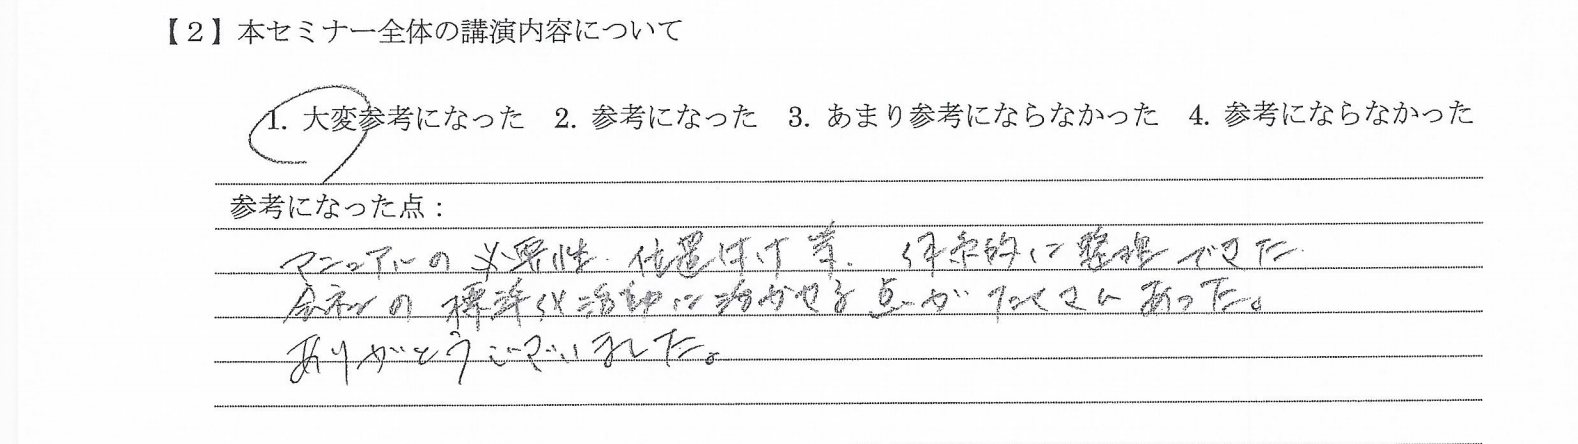 【2】本セミナー全体の講演内容について
1. 大変参考になった 2. 参考になった 3. あまり参考にならなかった 4. 参考にならなかった
参考になった点：
マニュアルの必要性、位置付け等、体系的に整理できた
会社の標準化活動に活かせる点がたくさんあった。
ありがとうございました。